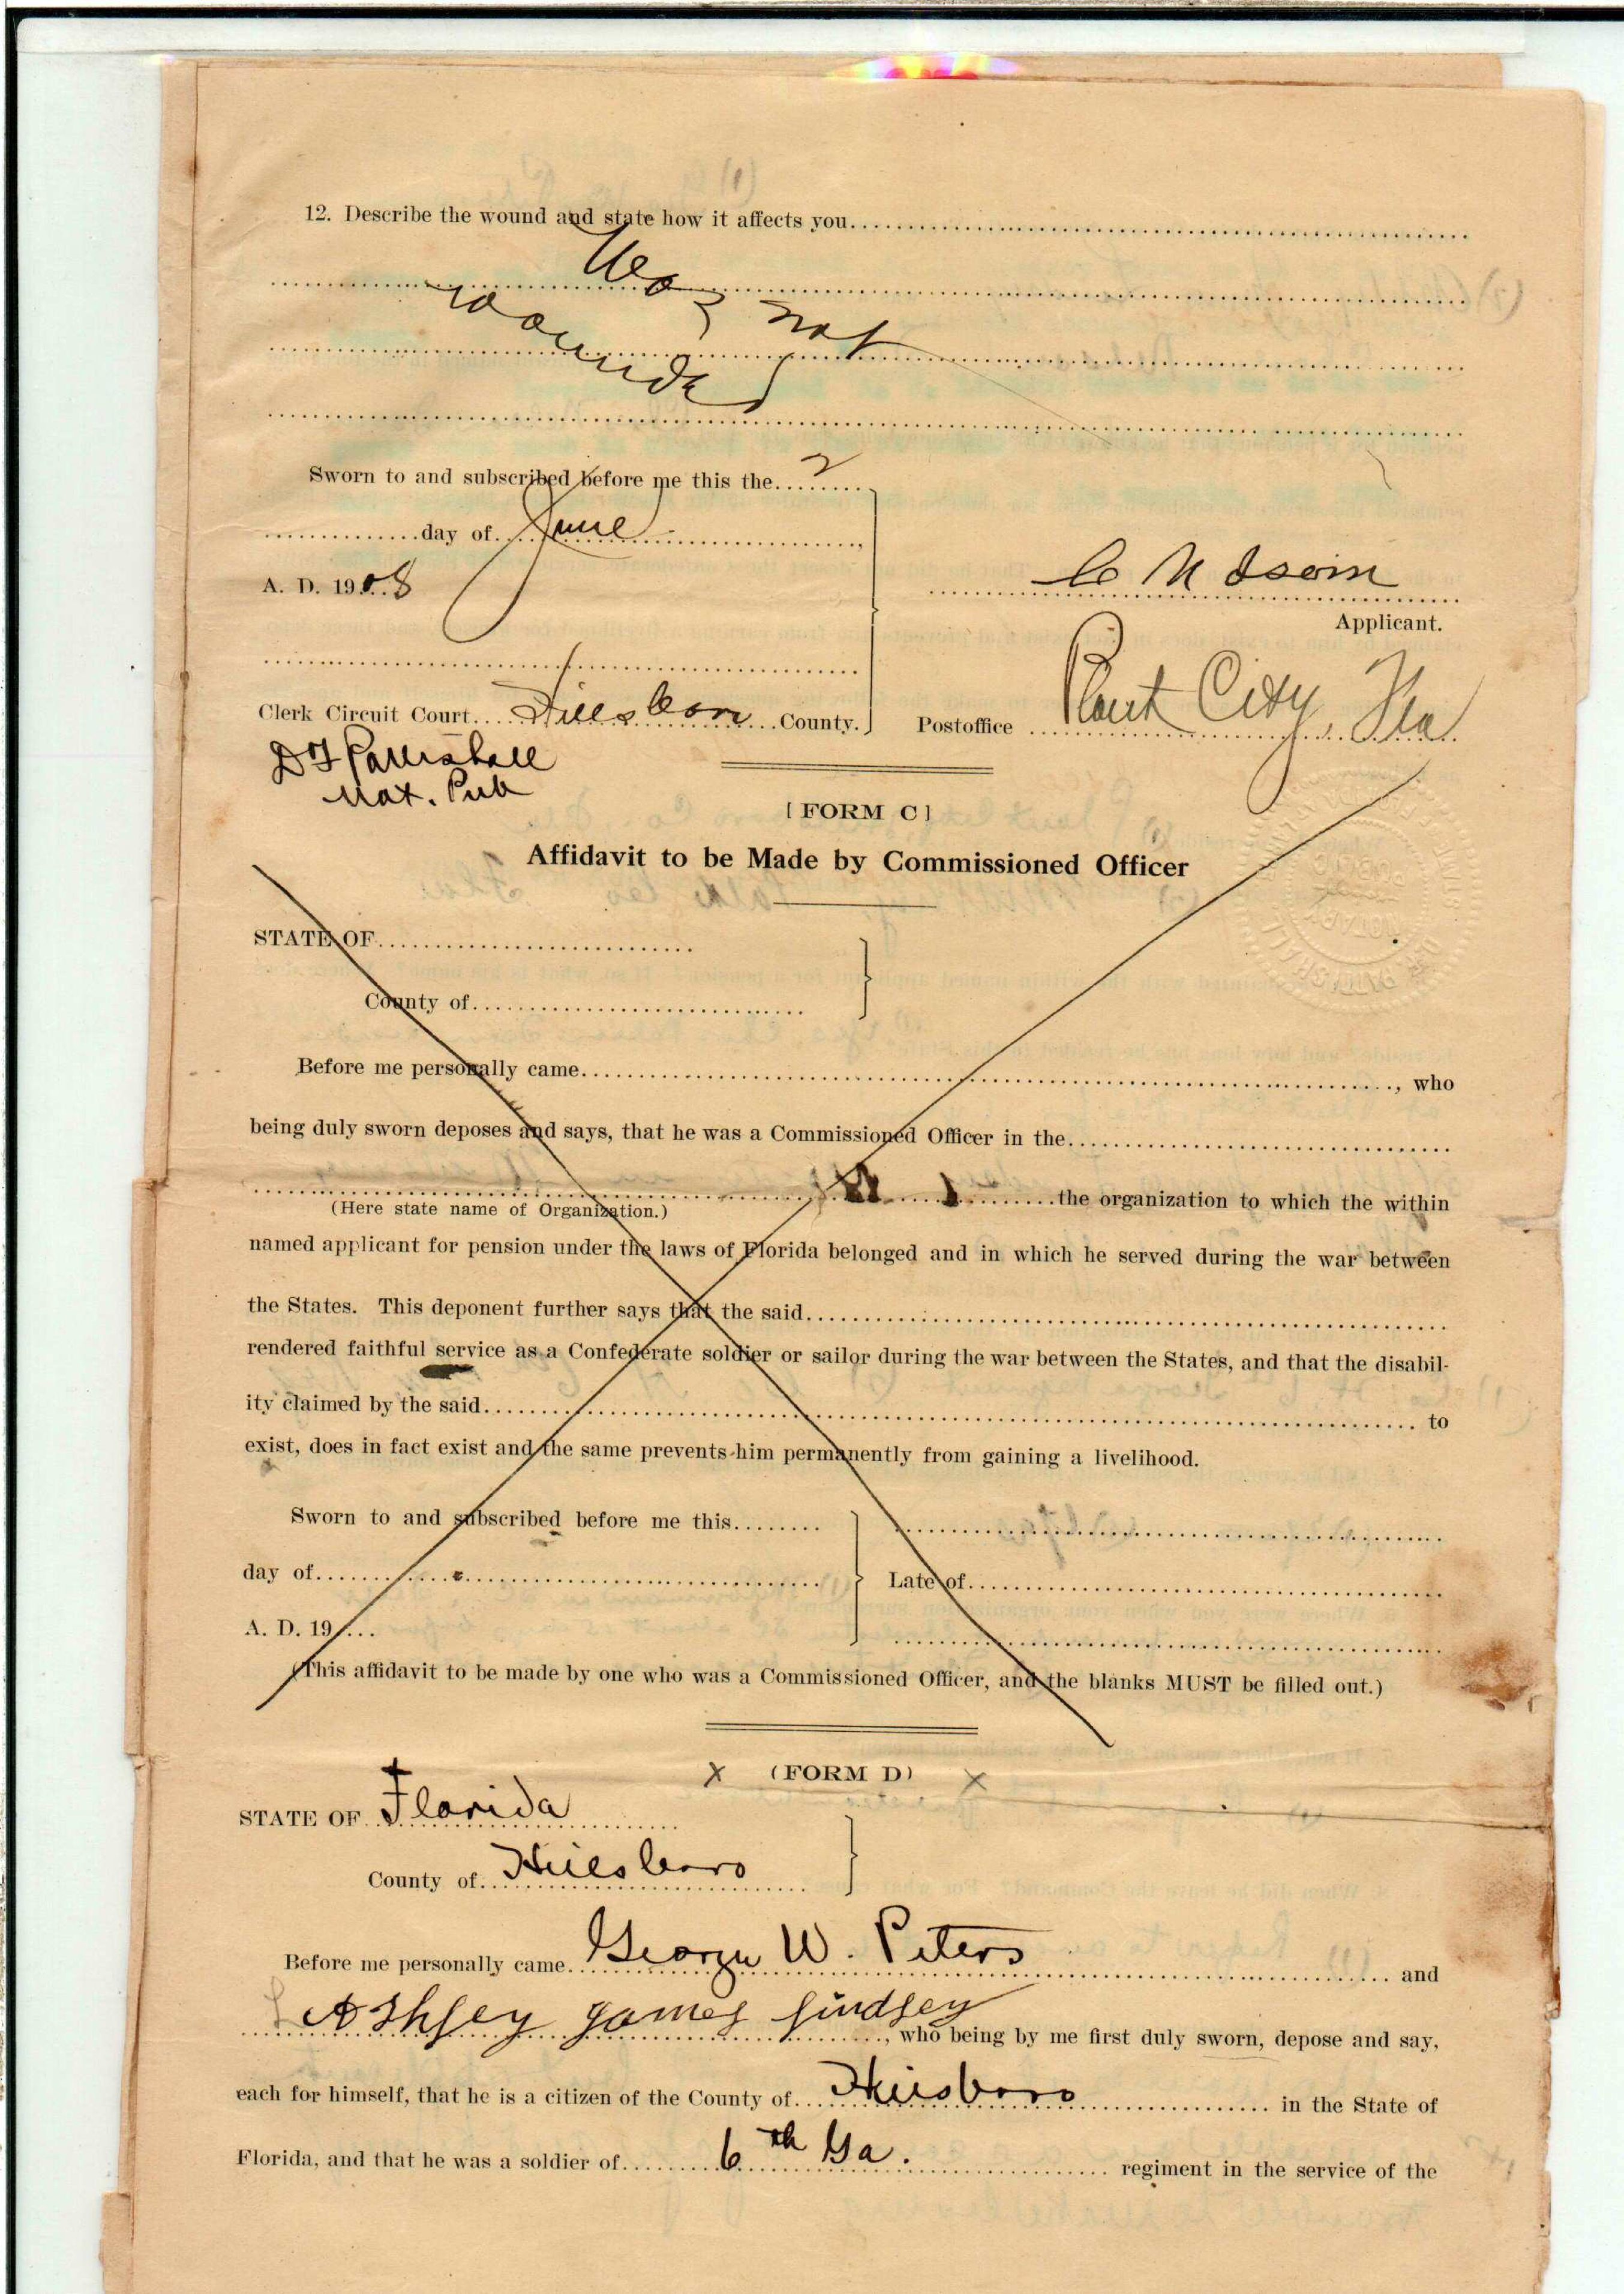 12. Describe the wound and state how it affects you
Was not
wounded
Sworn to and subscribed before me this the 2
day of June
A. D. 1908
C N Isom
Applicant.
Clerk Circuit Court Hillsboro County.
Postoffice Plant City, Fla
Nat. Pub
[FORM C]
Affidavit to be Made by Commissioned Officer
STATE OF
County of
Before me personally came, who
being duly sworn deposes and says, that he was a Commissioned Officer in the
the organization to which the within
(Here state name of Organization.)
named applicant for pension under the laws of Florida belonged and in which he served during the war between
the States. This deponent further says that the said
rendered faithful service as a Confederate soldier or sailor during the war between the States, and that the disabil-
ity claimed by the said to
exist, does in fact exist and the same prevents him permanently from gaining a livelihood.
Sworn to and subscribed before me this
day of
Late of
A. D. 19
(This affidavit to be made by one who was a Commissioned Officer, and the blanks MUST be filled out.)
x (FORM D) x
STATE OF Florida
County of Hillsboro
Before me personally came George W. Peters and
Ashley James Lindsey, who being by me first duly sworn, depose and say,
each for himself, that he is a citizen of the County of Hillsboro in the State of
Florida, and that he was a soldier of 6th Ga. regiment in the service of the